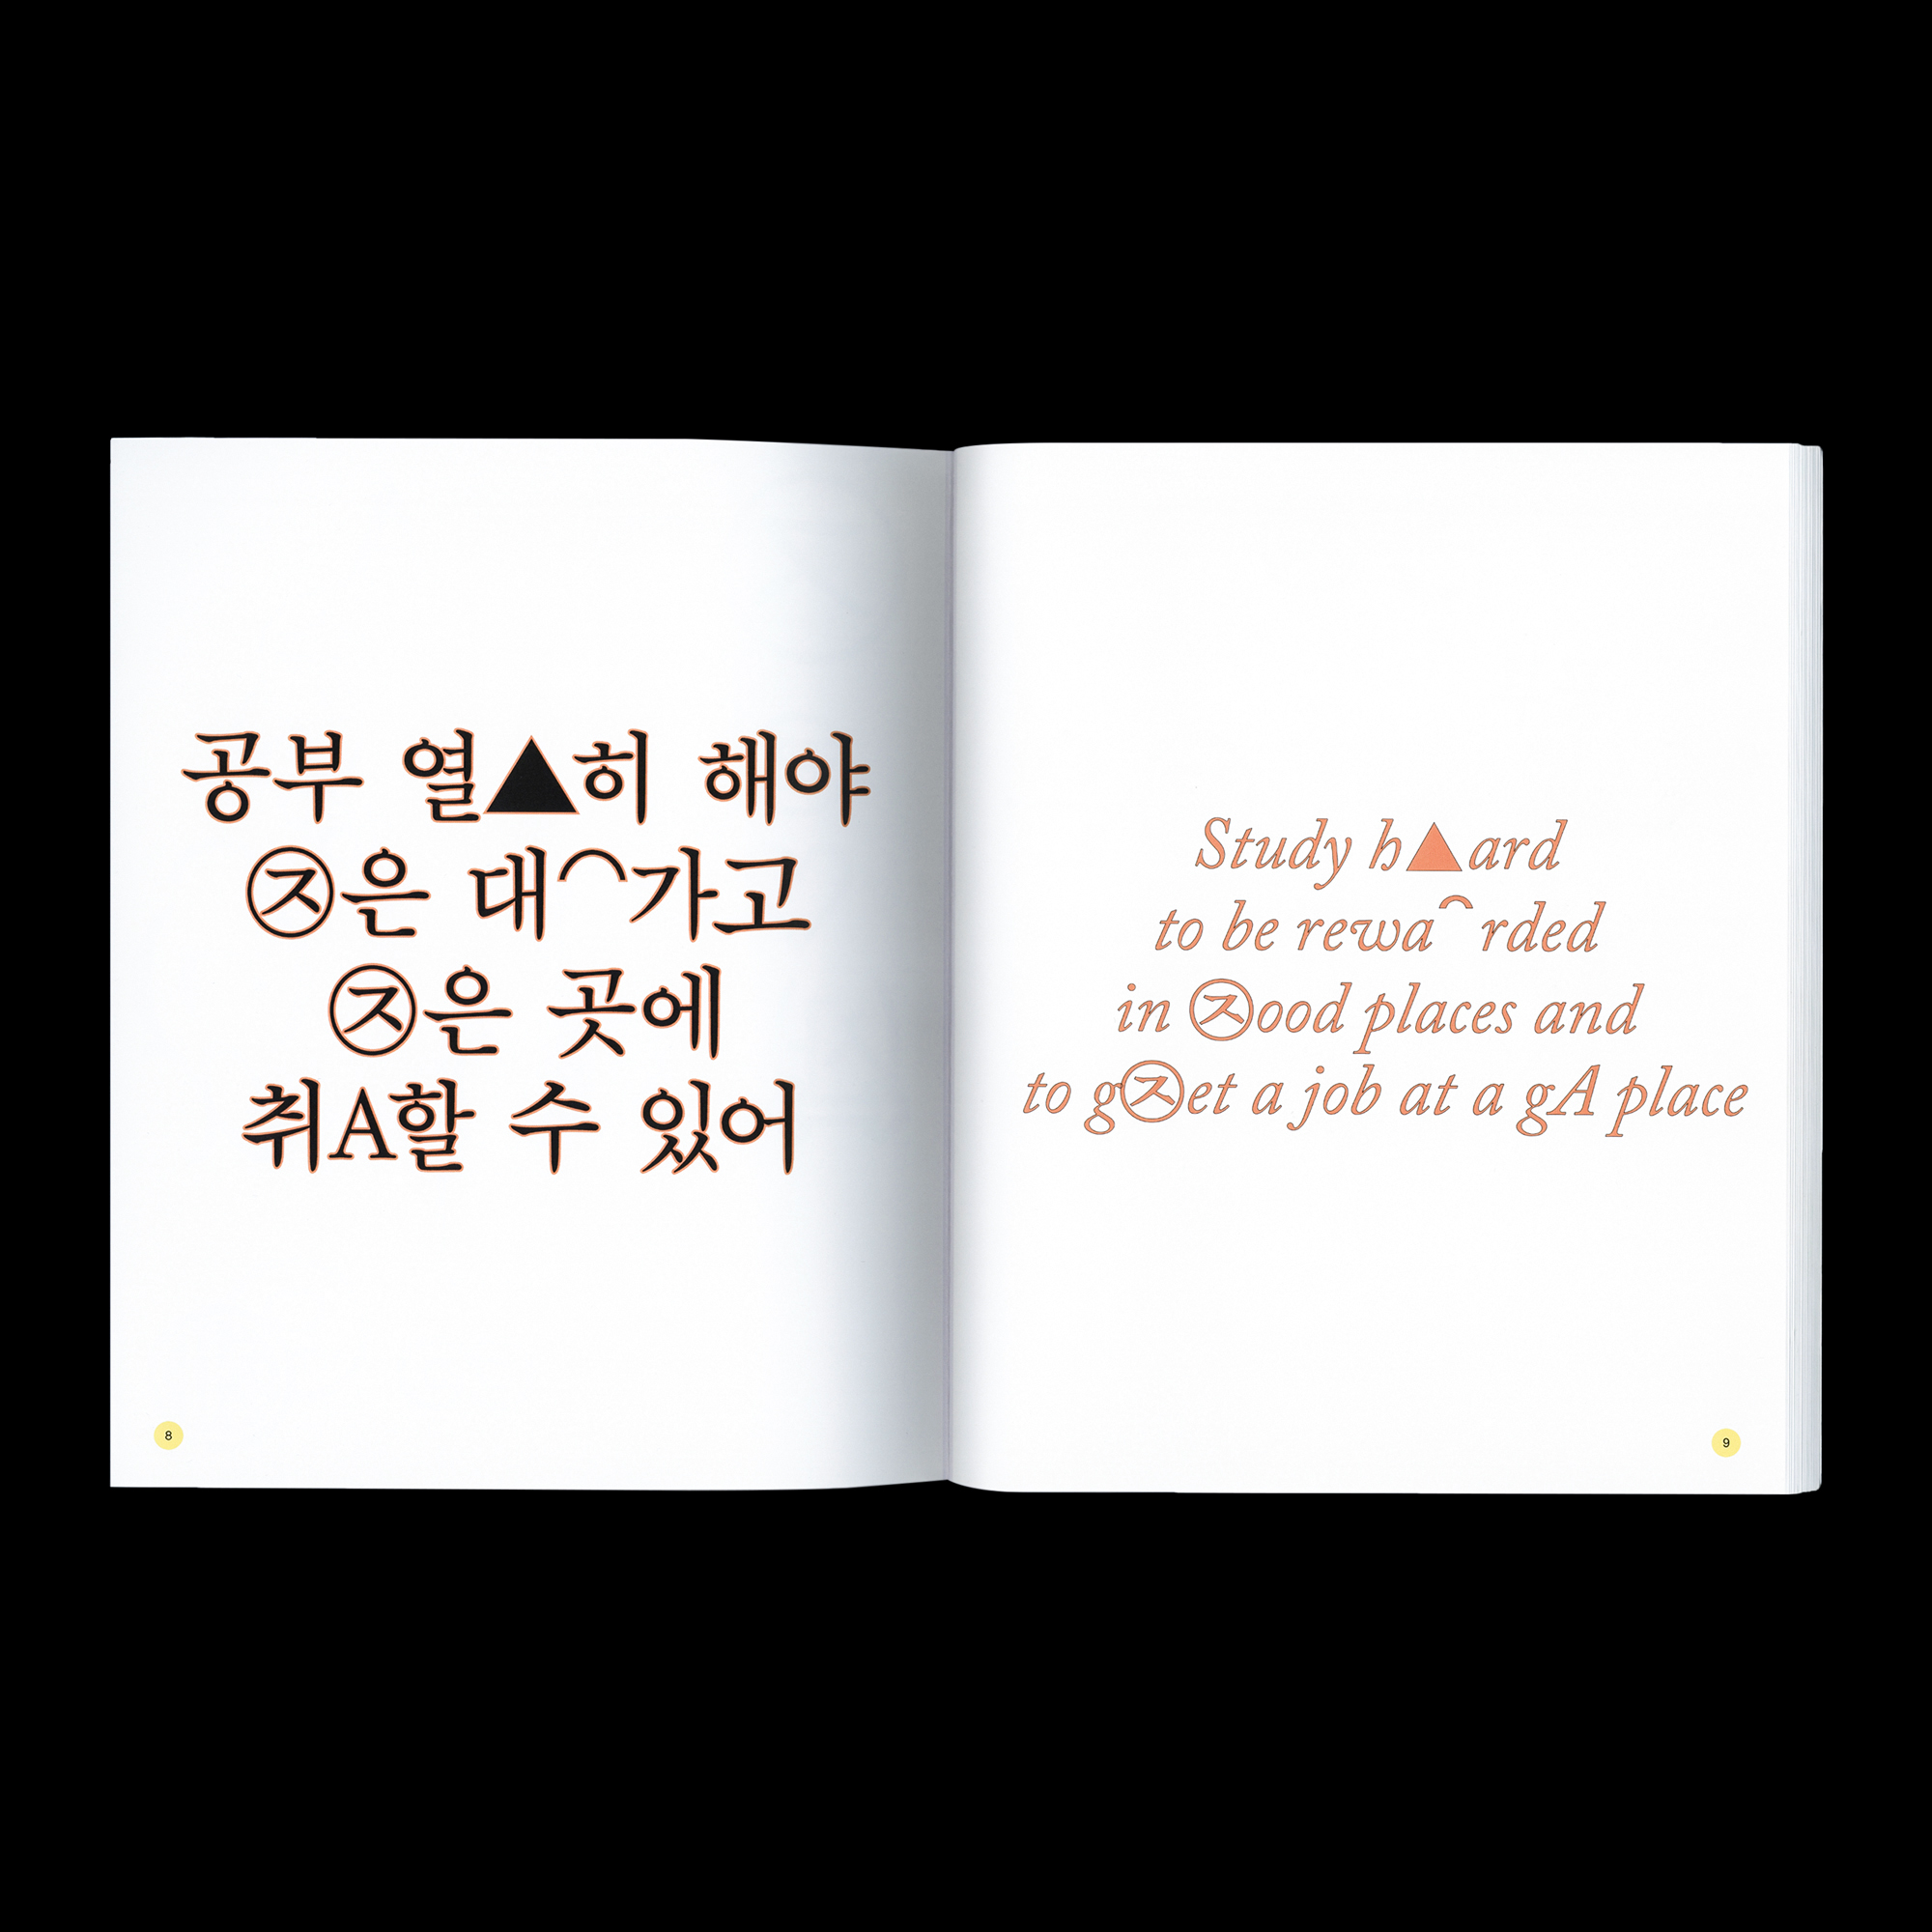 공부 열▲히 해야
㉨은 대⌒가고
㉨은 곳에
취A할 수 있어
8
Study h▲ard
to be rewa⌒rded
in ㉨ood places and
to g㉨et a job at a gA place
9